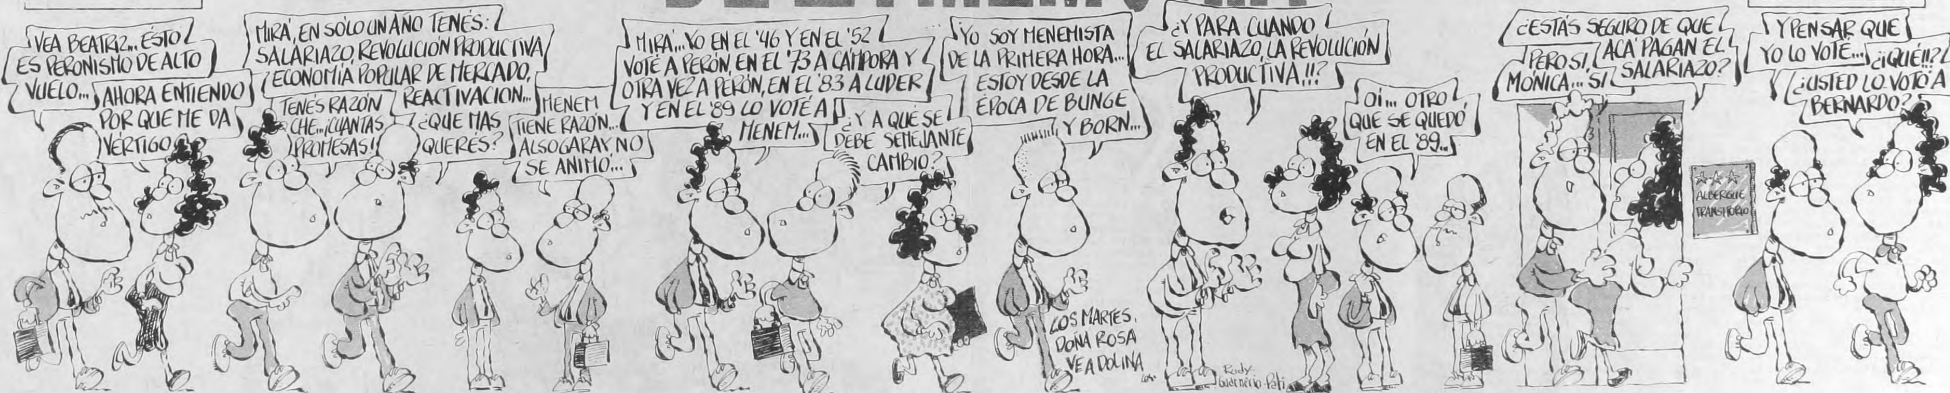 VEA BEATRIZ... ESTO
ES PERONISMO DE ALTO
VUELO...
AHORA ENTIENDO
POR QUE ME DA
VÉRTIGO
MIRÁ, EN SÓLO UN AÑO TENÉS:
SALARIAZO, REVOLUCIÓN PRODUCTIVA
ECONOMÍA POPULAR DE MERCADO,
REACTIVACIÓN...
TENÉS RAZÓN
CHE... ¡CUÁNTAS
PROMESAS!
¿QUE MAS
QUERÉS?
MENEM
TIENE RAZÓN...
ALSOGARAY NO
SE ANIMÓ...
MIRÁ... YO EN EL '46 Y EN EL '52
VOTÉ A PERÓN, EN EL '73 A CÁMPORA Y
OTRA VEZ A PERÓN, EN EL '83 A LUDER
Y EN EL '89 LO VOTÉ A
MENEM...
¿Y A QUÉ SE
DEBE SEMEJANTE
CAMBIO?
YO SOY MENEMISTA
DE LA PRIMERA HORA...
ESTOY DESDE LA
ÉPOCA DE BUNGE
Y BORN...
LOS MARTES,
DOÑA ROSA
VEA DOLINA
¿Y PARA CUANDO
EL SALARIAZO, LA REVOLUCIÓN
PRODUCTIVA!!?
Rudy
OÍ... OTRO
QUE SE QUEDÓ
EN EL '89...
¿ESTÁS SEGURO DE QUE
ACÁ PAGAN EL
SALARIAZO?
PERO SI,
MÓNICA... SI
☆☆☆
ALBERGUE
TRANSITORIO
Y PENSAR QUE
YO LO VOTÉ...
¿¡QUÉ!!?
¿USTED LO VOTÓ A
BERNARDO?